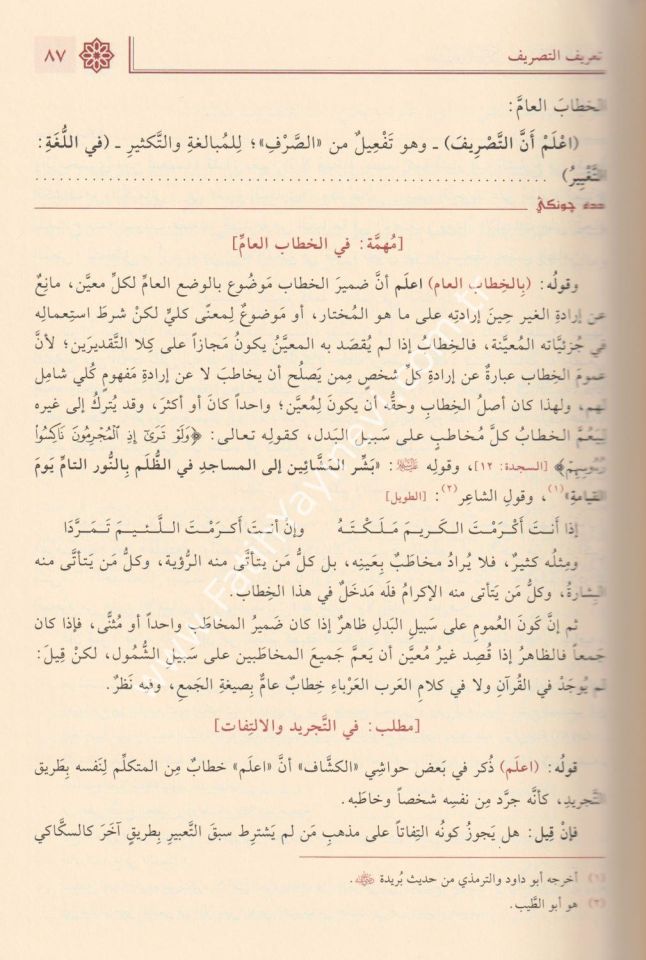 تعريف التصريف
٨٧
الخطابَ العامَّ:
(اعْلَمْ أَنَّ التَّصْرِيفَ) ـ وهو تَفْعِيلٌ من «الصَّرْفِ»؛ لِلمُبالغةِ والتَّكثيرِ ـ (في اللُّغَةِ:
التَّغْيِيرُ) ........................................
دده جونكي
[مُهمَّة: في الخطاب العامِّ]
وقولُه: (بِالخِطابِ العام) اعلَم أنَّ ضميرَ الخطاب مَوضُوع بالوضع العامِّ لكلِّ معيَّن، مانِعٌ
عن إرادةِ الغير حِينَ إرادتِه على ما هو المُختار، أو مَوضوعٌ لِمعنًى كليٍّ لكنْ شرطَ استِعمالِه
في جُزئيَّاته المُعيَّنة، فالخِطابُ إذا لم يُقصَد به المعيَّنُ يكونُ مَجازاً على كِلا التَّقديرَين؛ لأنَّ
عمومَ الخطاب عبارةٌ عن إرادةِ كلِّ شخصٍ مِمن يَصلُح أن يخاطَب لا عن إرادةِ مَفهومٍ كُلي شامِل
لهم، ولهذا كان أصلُ الخِطابِ وحقُّه أن يكونَ لِمُعيَّن؛ واحداً كانَ أو أكثرَ، وقد يُتركُ إلى غيره
لِيَعُمَّ الخطابُ كلَّ مخاطَبٍ على سَبيل البَدل، كقولِه تعالى: ﴿وَلَوْ تَرَىٰٓ إِذِ ٱلْمُجْرِمُونَ نَاكِسُواْ
رُءُوسِهِمْ﴾ [السجدة: ١٢]، وقولِه ﷺ: «بَشِّرِ المَشَّائين إلى المساجدِ في الظُّلَم بِالنُّور التامِّ يَومَ
القيامةِ»(١)، وقولِ الشاعرِ(٢): [الطويل]
إذا أَنتَ أَكْرَمْتَ الكَريمَ مَلَكْتَهُ وإنْ أنتَ أَكرَمْتَ اللَّئيمَ تَمرَّدَا
ومِثلُه كثيرٌ، فلا يُرادُ مخاطَبٌ بِعَينِه، بل كلُّ مَن يَتأتَّى منه الرُّؤية، وكلُّ مَن يَتأتَّى منه
البِشارةُ، وكلُّ مَن يَتأتى منه الإكرامُ فلَه مَدخَلٌ في هذا الخِطاب.
ثم إنَّ كَونَ العُمومِ على سَبيلِ البَدلِ ظاهرٌ إذا كان ضَميرُ المخاطَب واحداً أو مُثنًّى، فإذا كان
جَمعاً فالظاهرُ إذا قُصِد غيرُ مُعيَّن أن يَعمَّ جَميعَ المخاطَبين على سبيل الشُّمول، لكنْ قِيلَ:
لم يُوجَدْ في القُرآن ولا في كلامِ العرب العَرْباءِ خِطابٌ عامٌّ بصِيغةِ الجَمعِ، وفيه نَظرٌ.
[مطلب: في التَّجريد والالتِفات]
قولُه: (اعلَم) ذُكر في بَعض حواشِي «الكشَّاف» أنَّ «اعلَم» خطابٌ مِن المتكلِّم لِنَفسه بِطَريق
التَّجريدِ، كأنَّه جرَّد مِن نفسِه شخصاً وخاطَبه.
فإنْ قيل: هل يَجوزُ كونُه التِفاتاً على مذهبِ مَن لم يَشترِط سبقَ التَّعبيرِ بِطريقٍ آخَرَ كالسكَّاكي
(١) أخرجه أبو داود والترمذي من حديث بُريدة ﵁.
(٢) هو أبو الطَّيب.
www.FatihYayinevi.com.tr